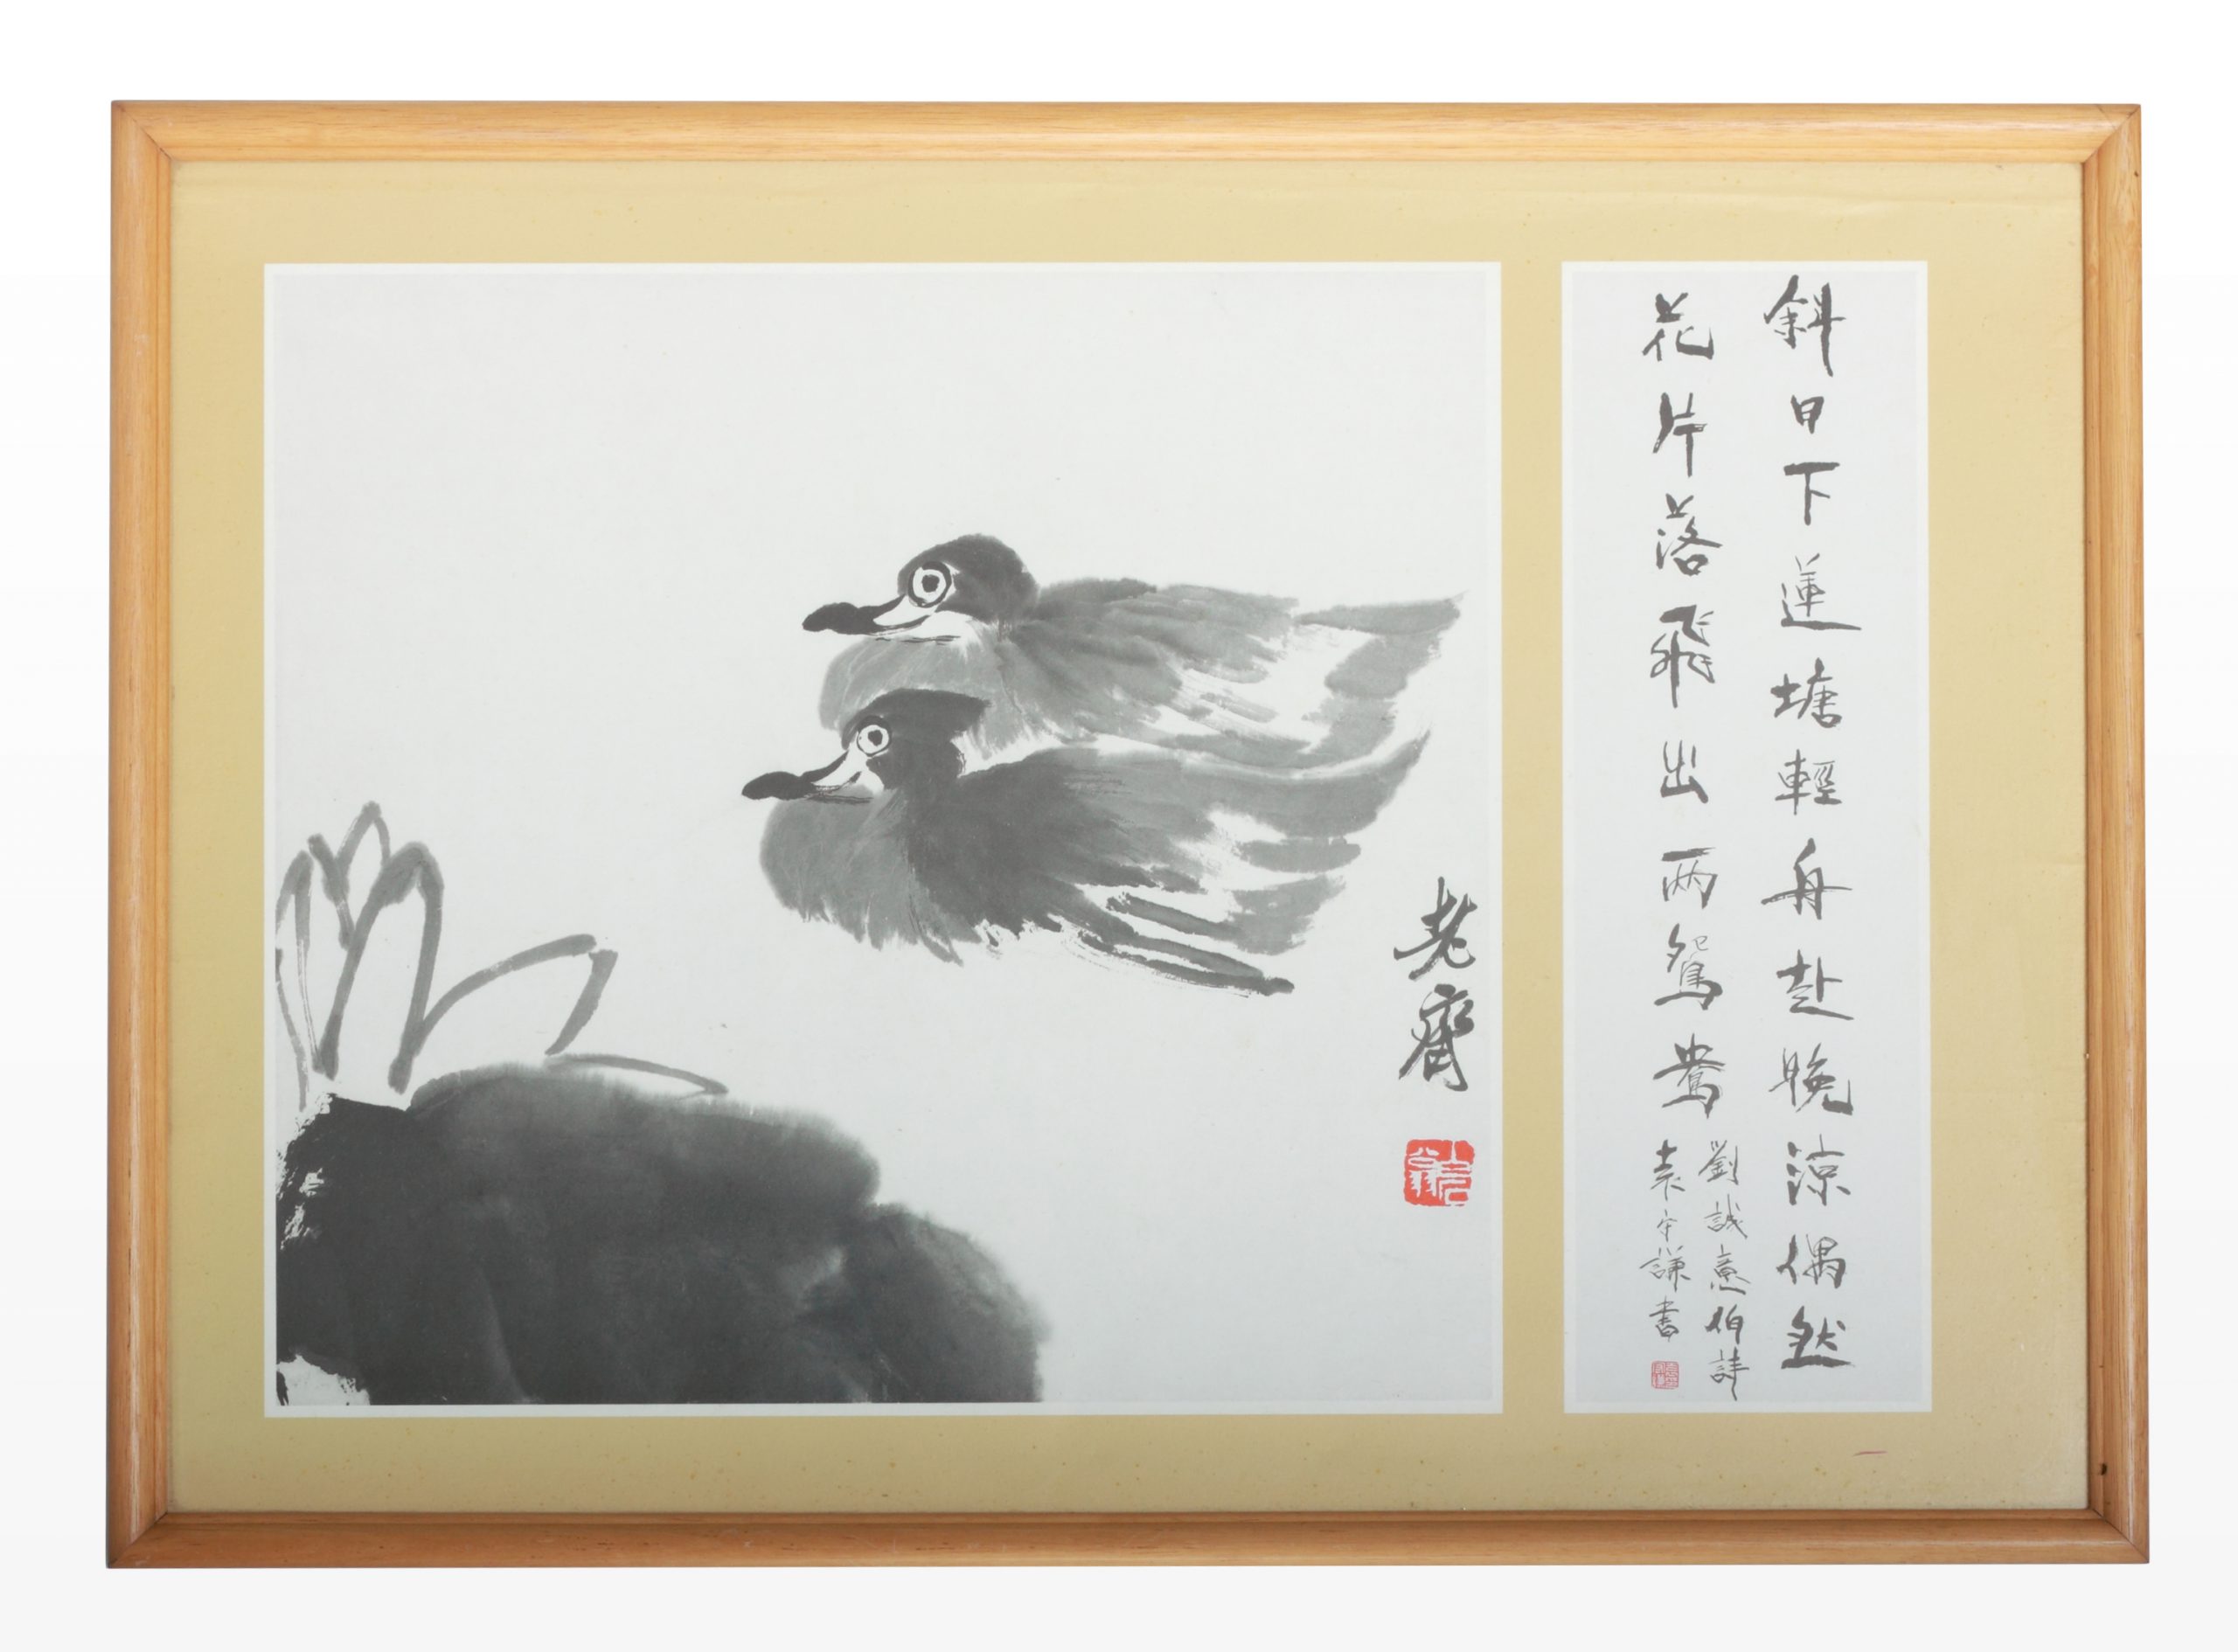 斜日下蓮塘輕舟赴晚涼偶然
花片落飛出兩鴛鴦
劉誠意伯詩
袁守謙書
老齊